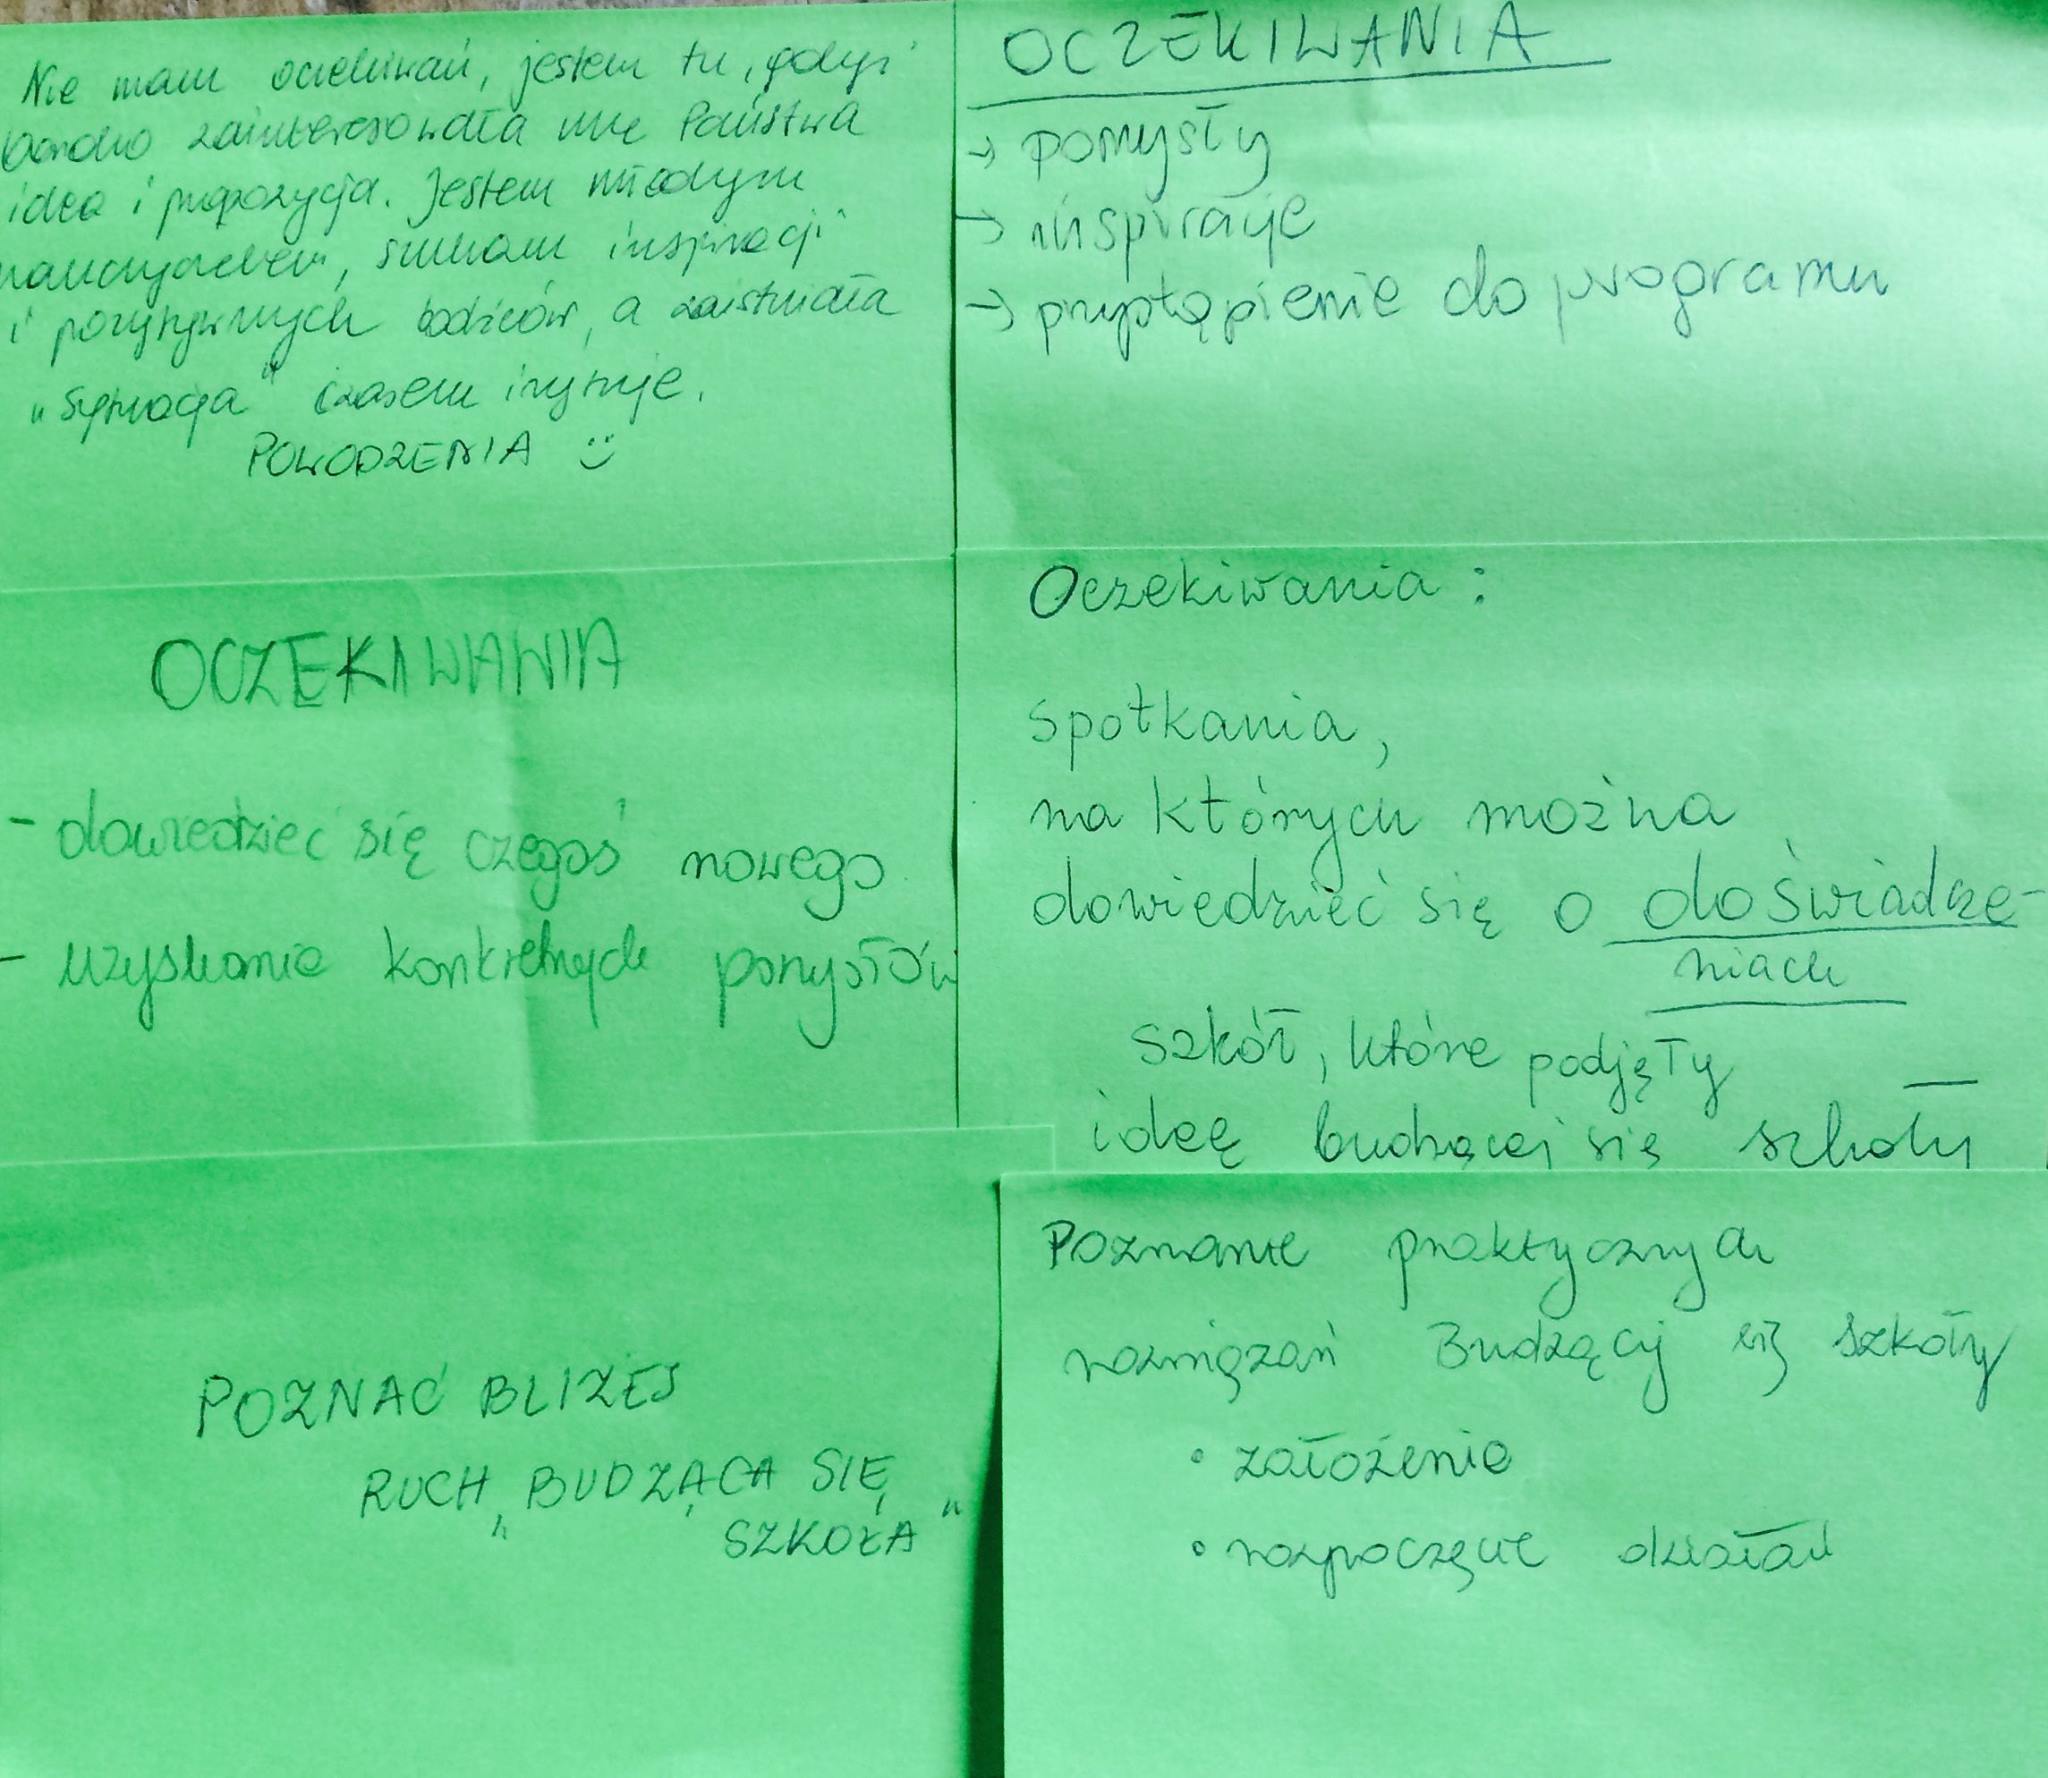 Nie mam oczekiwań, jestem tu, gdyż
bardzo zainteresowała mnie Państwa
idea i propozycja. Jestem młodym
nauczycielem, szukam inspiracji
i pozytywnych bodźców, a zaistniała
„sytuacja" czasem irytuje.
POWODZENIA :)
OCZEKIWANIA
→ pomysły
→ inspiracje
→ przystąpienie do programu
OCZEKIWANIA
- dowiedzieć się czegoś nowego
- uzyskanie konkretnych pomysłów
Oczekiwania :
spotkania,
na których można
dowiedzieć się o doświadcze-
niach
szkół, które podjęły
ideę budzącej się szkoły
POZNAĆ BLIŻEJ
RUCH „BUDZĄCA SIĘ
SZKOŁA"
Poznanie praktycznych
rozwiązań Budzącej się szkoły
• założenie
• rozpoczęcie działań